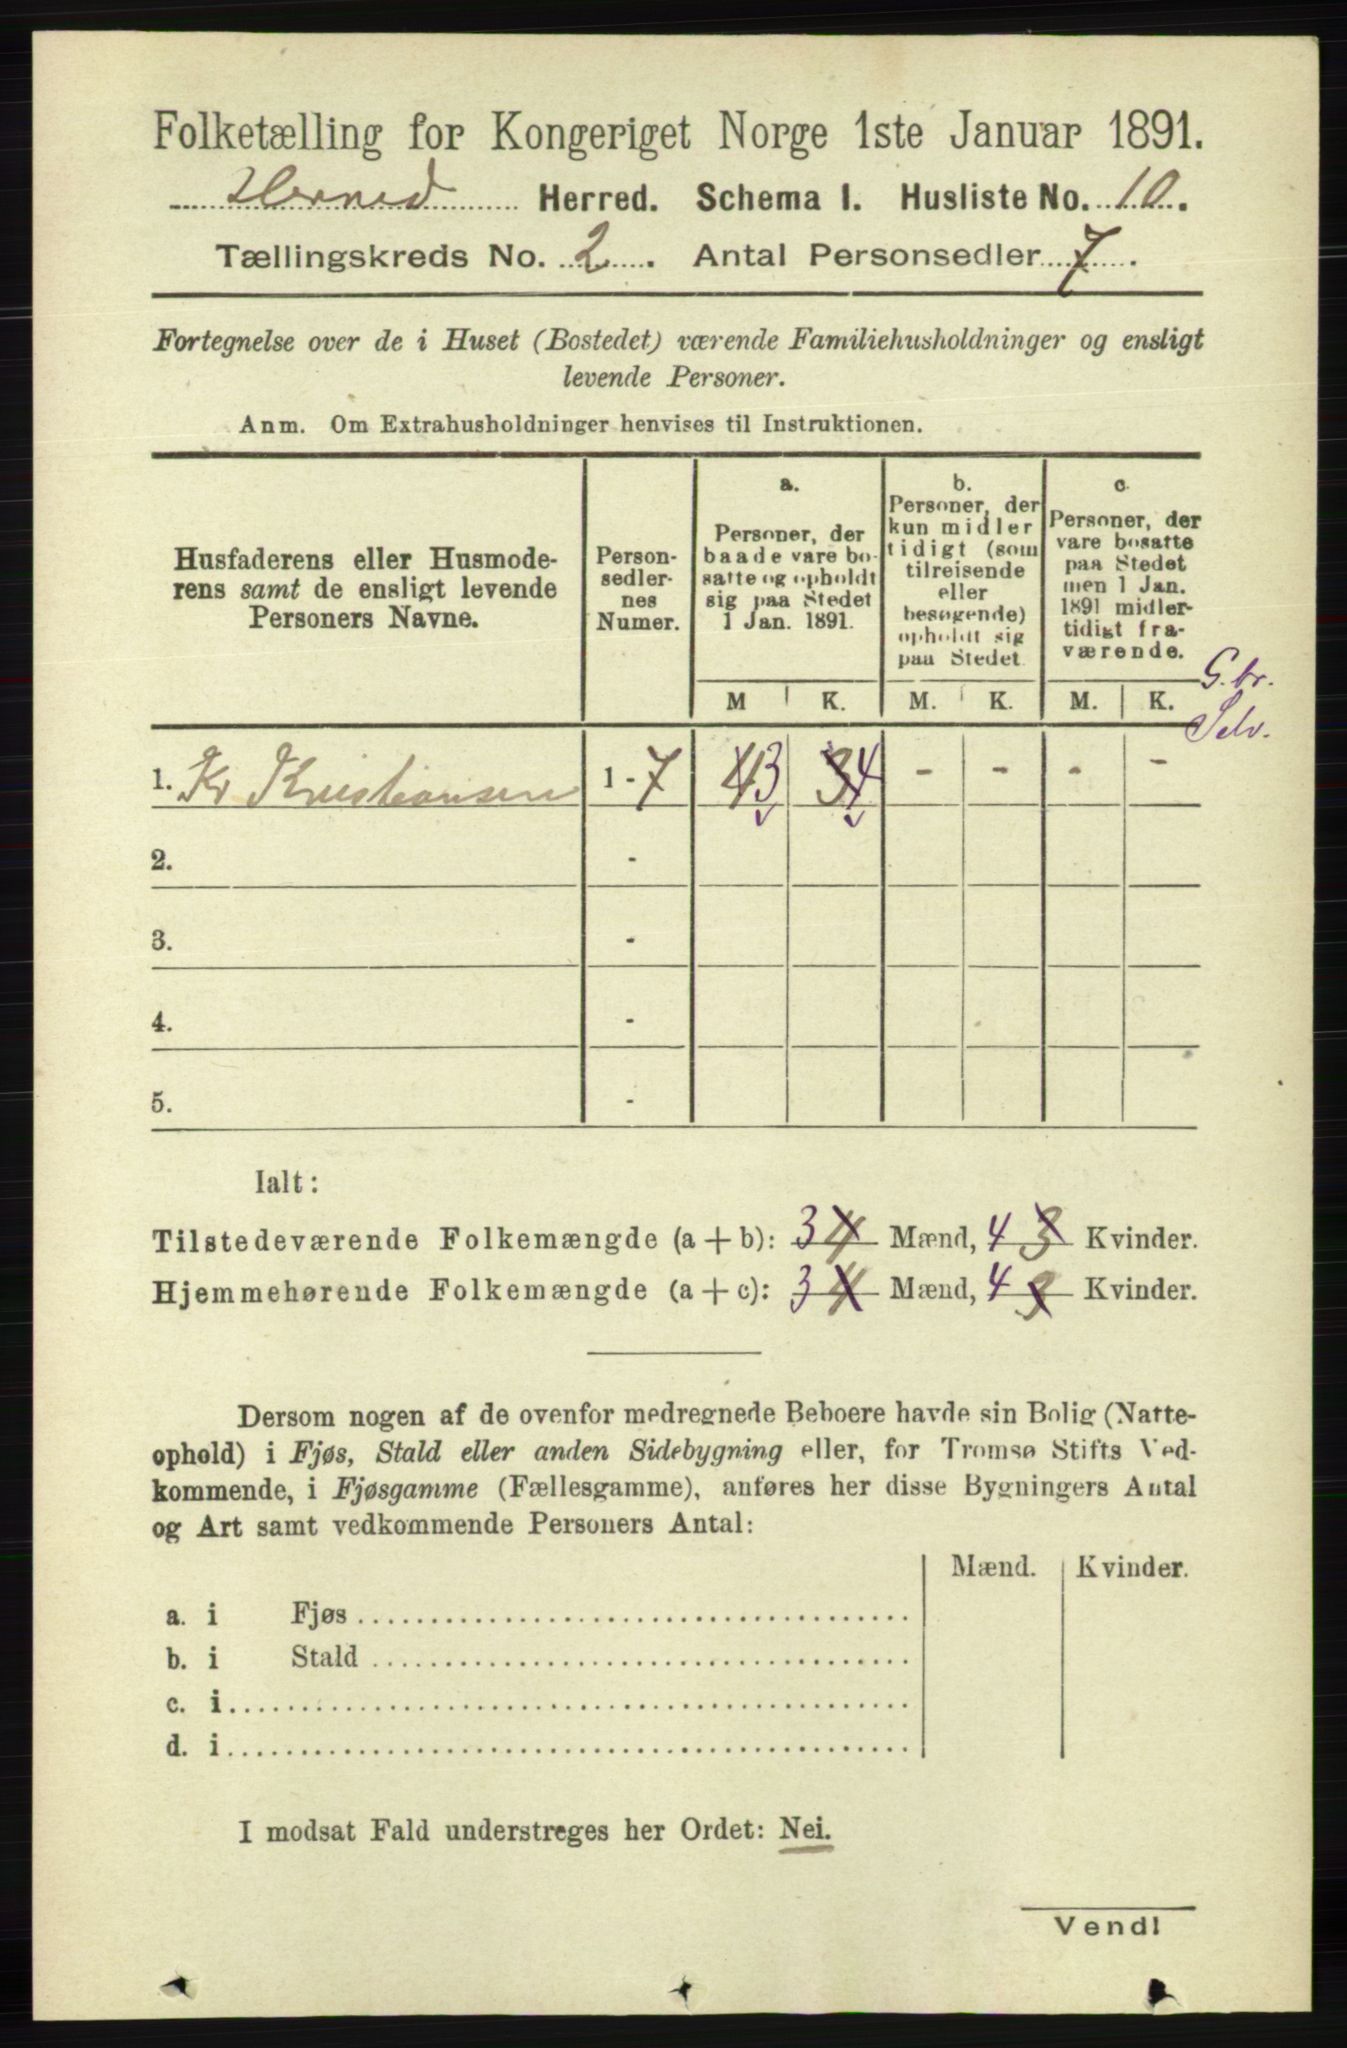 Folketælling for Kongeriget Norge 1ste Januar 1891.
Herred. Schema I. Husliste No. 10.
Tællingskreds No. 2. Antal Personsedler 7.
Fortegnelse over de i Huset (Bostedet) værende Familiehusholdninger og ensligt
levende Personer.
Anm. Om Extrahusholdninger henvises til Instruktionen.
Husfaderens eller Husmode-
rens samt de ensligt levende
Personers Navne.
Person-
sedler-
nes
Numer.
a.
Personer, der
baade vare bo-
satte og opholdt
sig paa Stedet
1 Jan. 1891.
b.
Personer, der
kun midler
tidigt (som
tilreisende
eller
besøgende)
opholdt sig
paa Stedet
c.
Personer, der
vare bosatte
paa Stedet
men 1 Jan.
1891 midler-
tidigt fra-
værende.
M K. M. K. M. K.
G. br.
Selv.
1. Kr Kristiansen 1 - 7 4 3 3 4 - - - -
2. -
3. -
4. -
5. -
Ialt:
Tilstedeværende Folkemængde (a + b): 3 4 Mænd, 4 3 Kvinder.
Hjemmehørende Folkemængde (a + c): 3 4 Mænd, 4 3 Kvinder.
Dersom nogen af de ovenfor medregnede Beboere havde sin Bolig (Natte-
ophold) i Fjøs, Stald eller anden Sidebygning eller, for Tromsø Stifts Ved-
kommende, i Fjøsgamme (Fællesgamme), anføres her disse Bygningers Antal
og Art samt vedkommende Personers Antal:
Mænd. Kvinder.
a. i Fjøs
b. i Stald
c. i
d. i
I modsat Fald understreges her Ordet: Nei.
Vend!